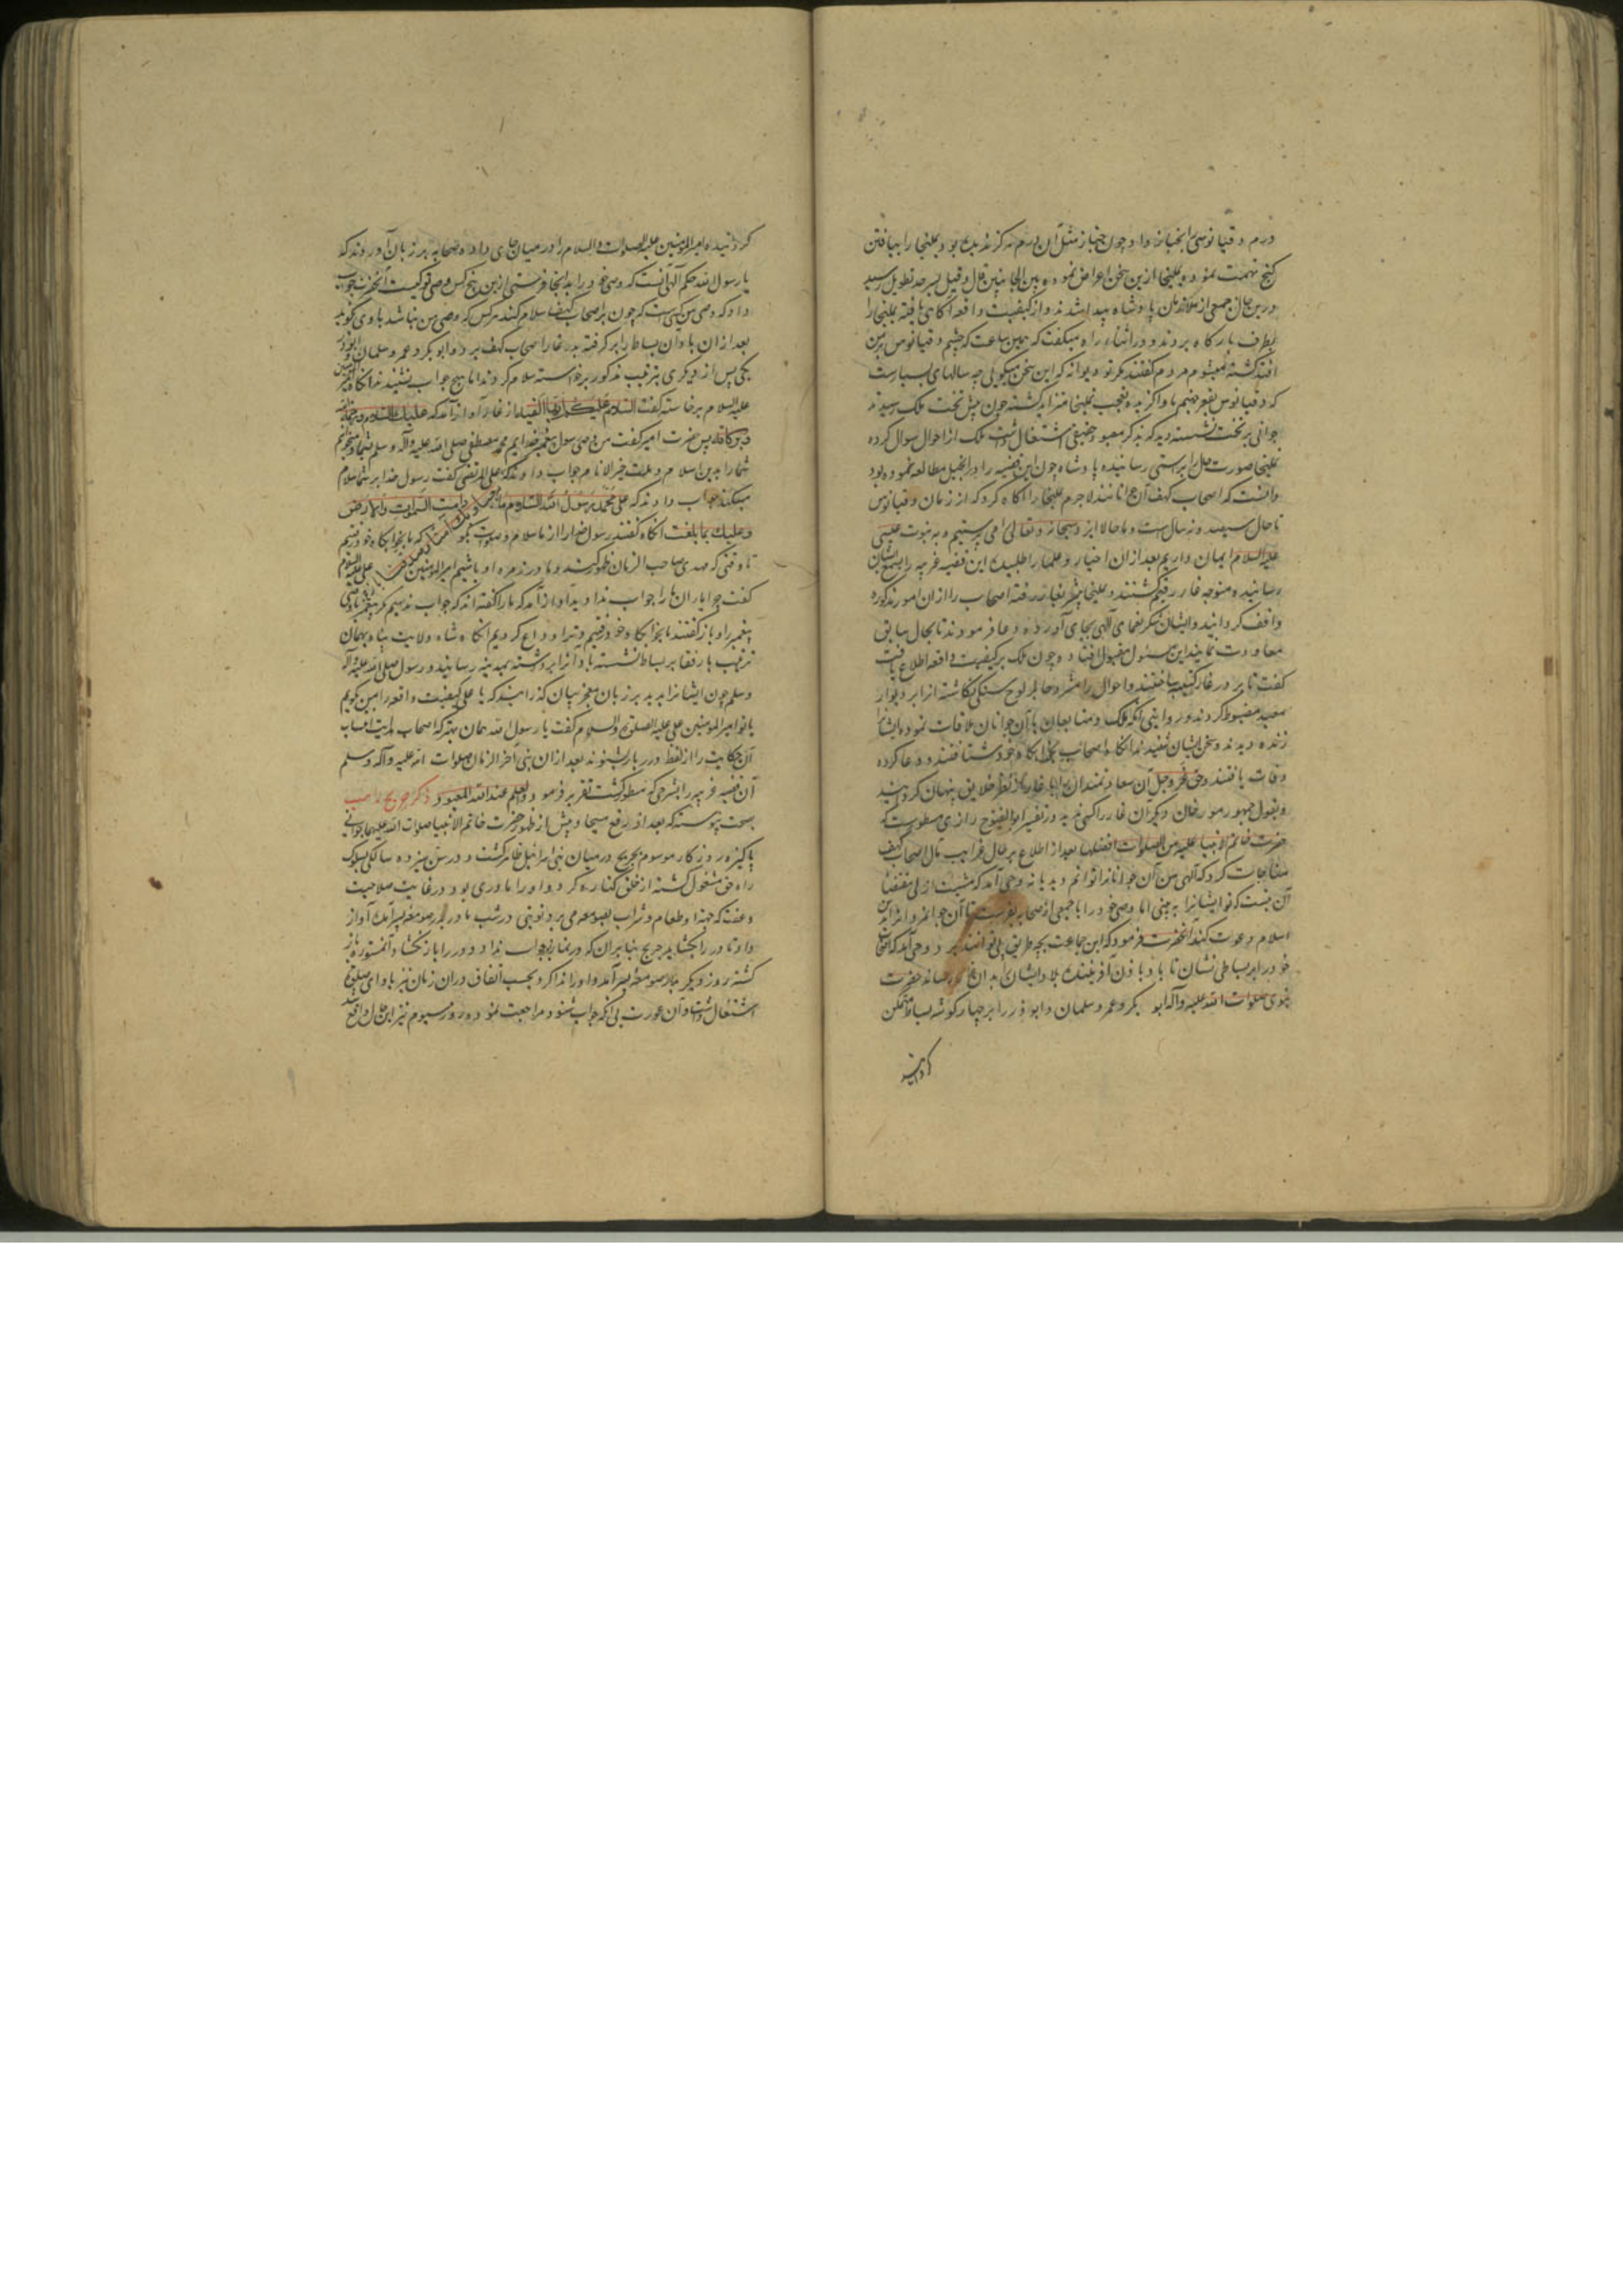 درم دقیانوسی را بخباز داد و چون خباز مثل آن درم هرگز ندیده بود یملیخا را بیافتن
کنج تهمت نمود و یملیخا ازین سخن اعراض نموده و بین الجانبین قال و قیل بسرحد تطویل رسید
درین حال جمعی از ملازمان پادشاه پیدا شدند و از کیفیت واقعه آگاهی یافته یملیخا را
بطرف بارگاه بردند و در اثناء راه میگفت که همین ساعت که چشم دقیانوس بر من
افتد کشته میشوم مردم گفتند مگر تو دیوانه که این سخن میگوئی چه سالهای بسیارست
که دقیانوس بقعر جهنم ماوا گزیده و تعجب یملیخا متزاید گشته چون پیش تخت ملک رسید
جوانی بر تخت نشسته دید که بذکر معبود حقیقی اشتغال داشت ملک از احوال سوال کرده
یملیخا صورت حال براستی رسانیده پادشاه چون این قضیه را در انجیل مطالعه نموده بود
دانست که اصحاب کهف آن جوانانند لاجرم یملیخا را آگاه کرد که از زمان دقیانوس
تا حال سیصد و نه سال است و ما حالا ایزد سبحانه و تعالی را می پرستیم و به نبوت عیسی
علیه السلام ایمان داریم بعد از ان احبار و علما را طلبیده این قضیه غریبه را بسمع ایشان
رسانیده متوجه غار رقیم گشتند و یملیخا پیشتر بغار رفته اصحاب را ازان امور مذکوره
واقف گردانید و ایشان شکر نعمای آلهی بجای آورده دعا فرمودند تا بحال سابق
معاودت نمایند این مسئول مقبول افتاد و چون ملک بر کیفیت واقعه اطلاع یافت
گفت تا بر در غار کنیسه ساختند و احوال را مشروحا بر لوح سنگی نگاشته انرا بر دیوار
معبد مضبوط کردند و روایتی آنکه ملک و متابعان با آن جوانان ملاقات نموده ایشانرا
زنده دیدند و سخن ایشان شنیدند آنگاه اصحاب بخوابگاه خود شتافتند و دعا کرده
وفات یافتند و حق عز و جل آن سعادتمندان را با غار از نظر خلایق پنهان گردانید
و بقول جمهور مورخان دیگر آن غار را کسی ندید و در تفسیر ابو الفتوح رازی مسطورست که
حضرت خاتم الانبیا علیه من الصلوات افضلها بعد از اطلاع بر حال غرایب مآل اصحاب کهف
مناجات کرد که آلهی من آن جوانانرا توانم دید یا نه وحی آمد که مشیت ازلی مقتضی
آن نیست که تو ایشانرا به بینی اما وصی خود را با جمعی از صحابه بفرست تا آن جوانمردانرا بدین
اسلام دعوت کنند آنحضرت فرمود که این جماعت بچه طریق آنجا توانند رفت وحی آمد که
خود را بر بساطی نشان تا باد باذن آفریننده بلاد ایشان را بدان غار رساند حضرت
نبوی صلوات الله علیه و آله ابو بکر و عمر و سلمان و ابو ذر را بر چهار گوشه بساط متمکن
گردانیده
گردانیده امیرالمؤمنین علیه الصلوات والسلام را در میان جای داد و صحابه بر زبان آوردند که
یا رسول الله حکم آلهی آنست که وصی خود را بدانجا فرستی ازین پنج کس وصی تو کیست آنحضرت جواب
داد که وصی من کسی است که چون بر اصحاب کهف سلام کند هرکس که وصی من نباشد با وی نگویند
بعد از ان باد آن بساط را برگرفته بدر غار اصحاب کهف برد و ابو بکر و عمر و سلمان و ابوذر
یکی پس از دیگری بترتیب مذکور برخاسته سلام کردند اما هیچ جواب نشنیدند آنگاه امیرالمؤمنین
علیه السلام برخاسته گفت السلام علیکم ایها الفتیة از غار آواز آمد که علیک السلام و رحمة الله
و برکاته پس حضرت امیر گفت من وصی رسول پیغمبر خدایم محمد مصطفی صلی الله علیه و آله و سلم
شما را بدین اسلام و ملت خیر الانام جواب دادند که علی المرتضی گفت رسول خدا بر شما سلام
میکند جواب دادند که علی محمد رسول الله السلام ما دامت السموات والارض
و علیک بما بلغت آنگاه گفتند رسول خدا را از ما سلام و صلوات بگو که ما بخوابگاه خود رفتیم
تا وقتی که مهدی صاحب الزمان ظهور کند و ما در زمره او باشیم امیرالمؤمنین علی علیه السلام
گفت چرا یاران ما را جواب ندادید آواز آمد که ما را گفته اند که جواب ندهیم مگر پیغمبر یا وصی
پیغمبر را و باز گفتند ما بخوابگاه خود رفتیم و ترا وداع کردیم آنگاه شاه ولایت پناه بهمان
ترتیب با رفقا بر بساط نشسته باد آنرا برداشته بمدینه رسانید و رسول صلی الله علیه و آله
و سلم چون ایشانرا بدید بر زبان معجز بیان گذرانید که یا علی کیفیت واقعه را من گویم
یا تو امیر المؤمنین علی علیه الصلوة والسلام گفت یا رسول الله همان بهتر که اصحاب هدایت انتساب
آن حکایت را از لفظ درر بار شنوند بعد ازان نبی آخر الزمان صلوات الله علیه و آله و سلم
آن قضیه غریبه را بشرحی که مسطور گشت تقریر فرمود والعلم عند الله المعبود ذکر جریج راهب
بصحت پیوسته که بعد از رفع مسیحا و پیش از ظهور حضرت خاتم الانبیا صلوات الله علیهما جوانی
پاکیزه روزگار موسوم بجریج در میان بنی اسرائیل ظاهر گشت و در سن سیزده سالگی بسلوک
راه حق مشغول گشته از خلق کناره کرد و او را مادری بود در غایت صلاحیت
و عفت که جهة او طعام و شراب بصومعه می برد نوبتی در شب مادر بدر صومعه پسر آمده آواز
داد تا در را بگشاید جریج بنا بران که در نماز بود جواب نداد و در را باز نگشاد آن مستوره باز
گشته روز دیگر بدر صومعه پسر آمد و او را ندا کرد و بحسب اتفاق دران زمان نیز باداء صلوة
اشتغال داشت و آن عورت بی آنکه جواب شنود مراجعت نمود و روز سیوم نیز این حال واقع شد